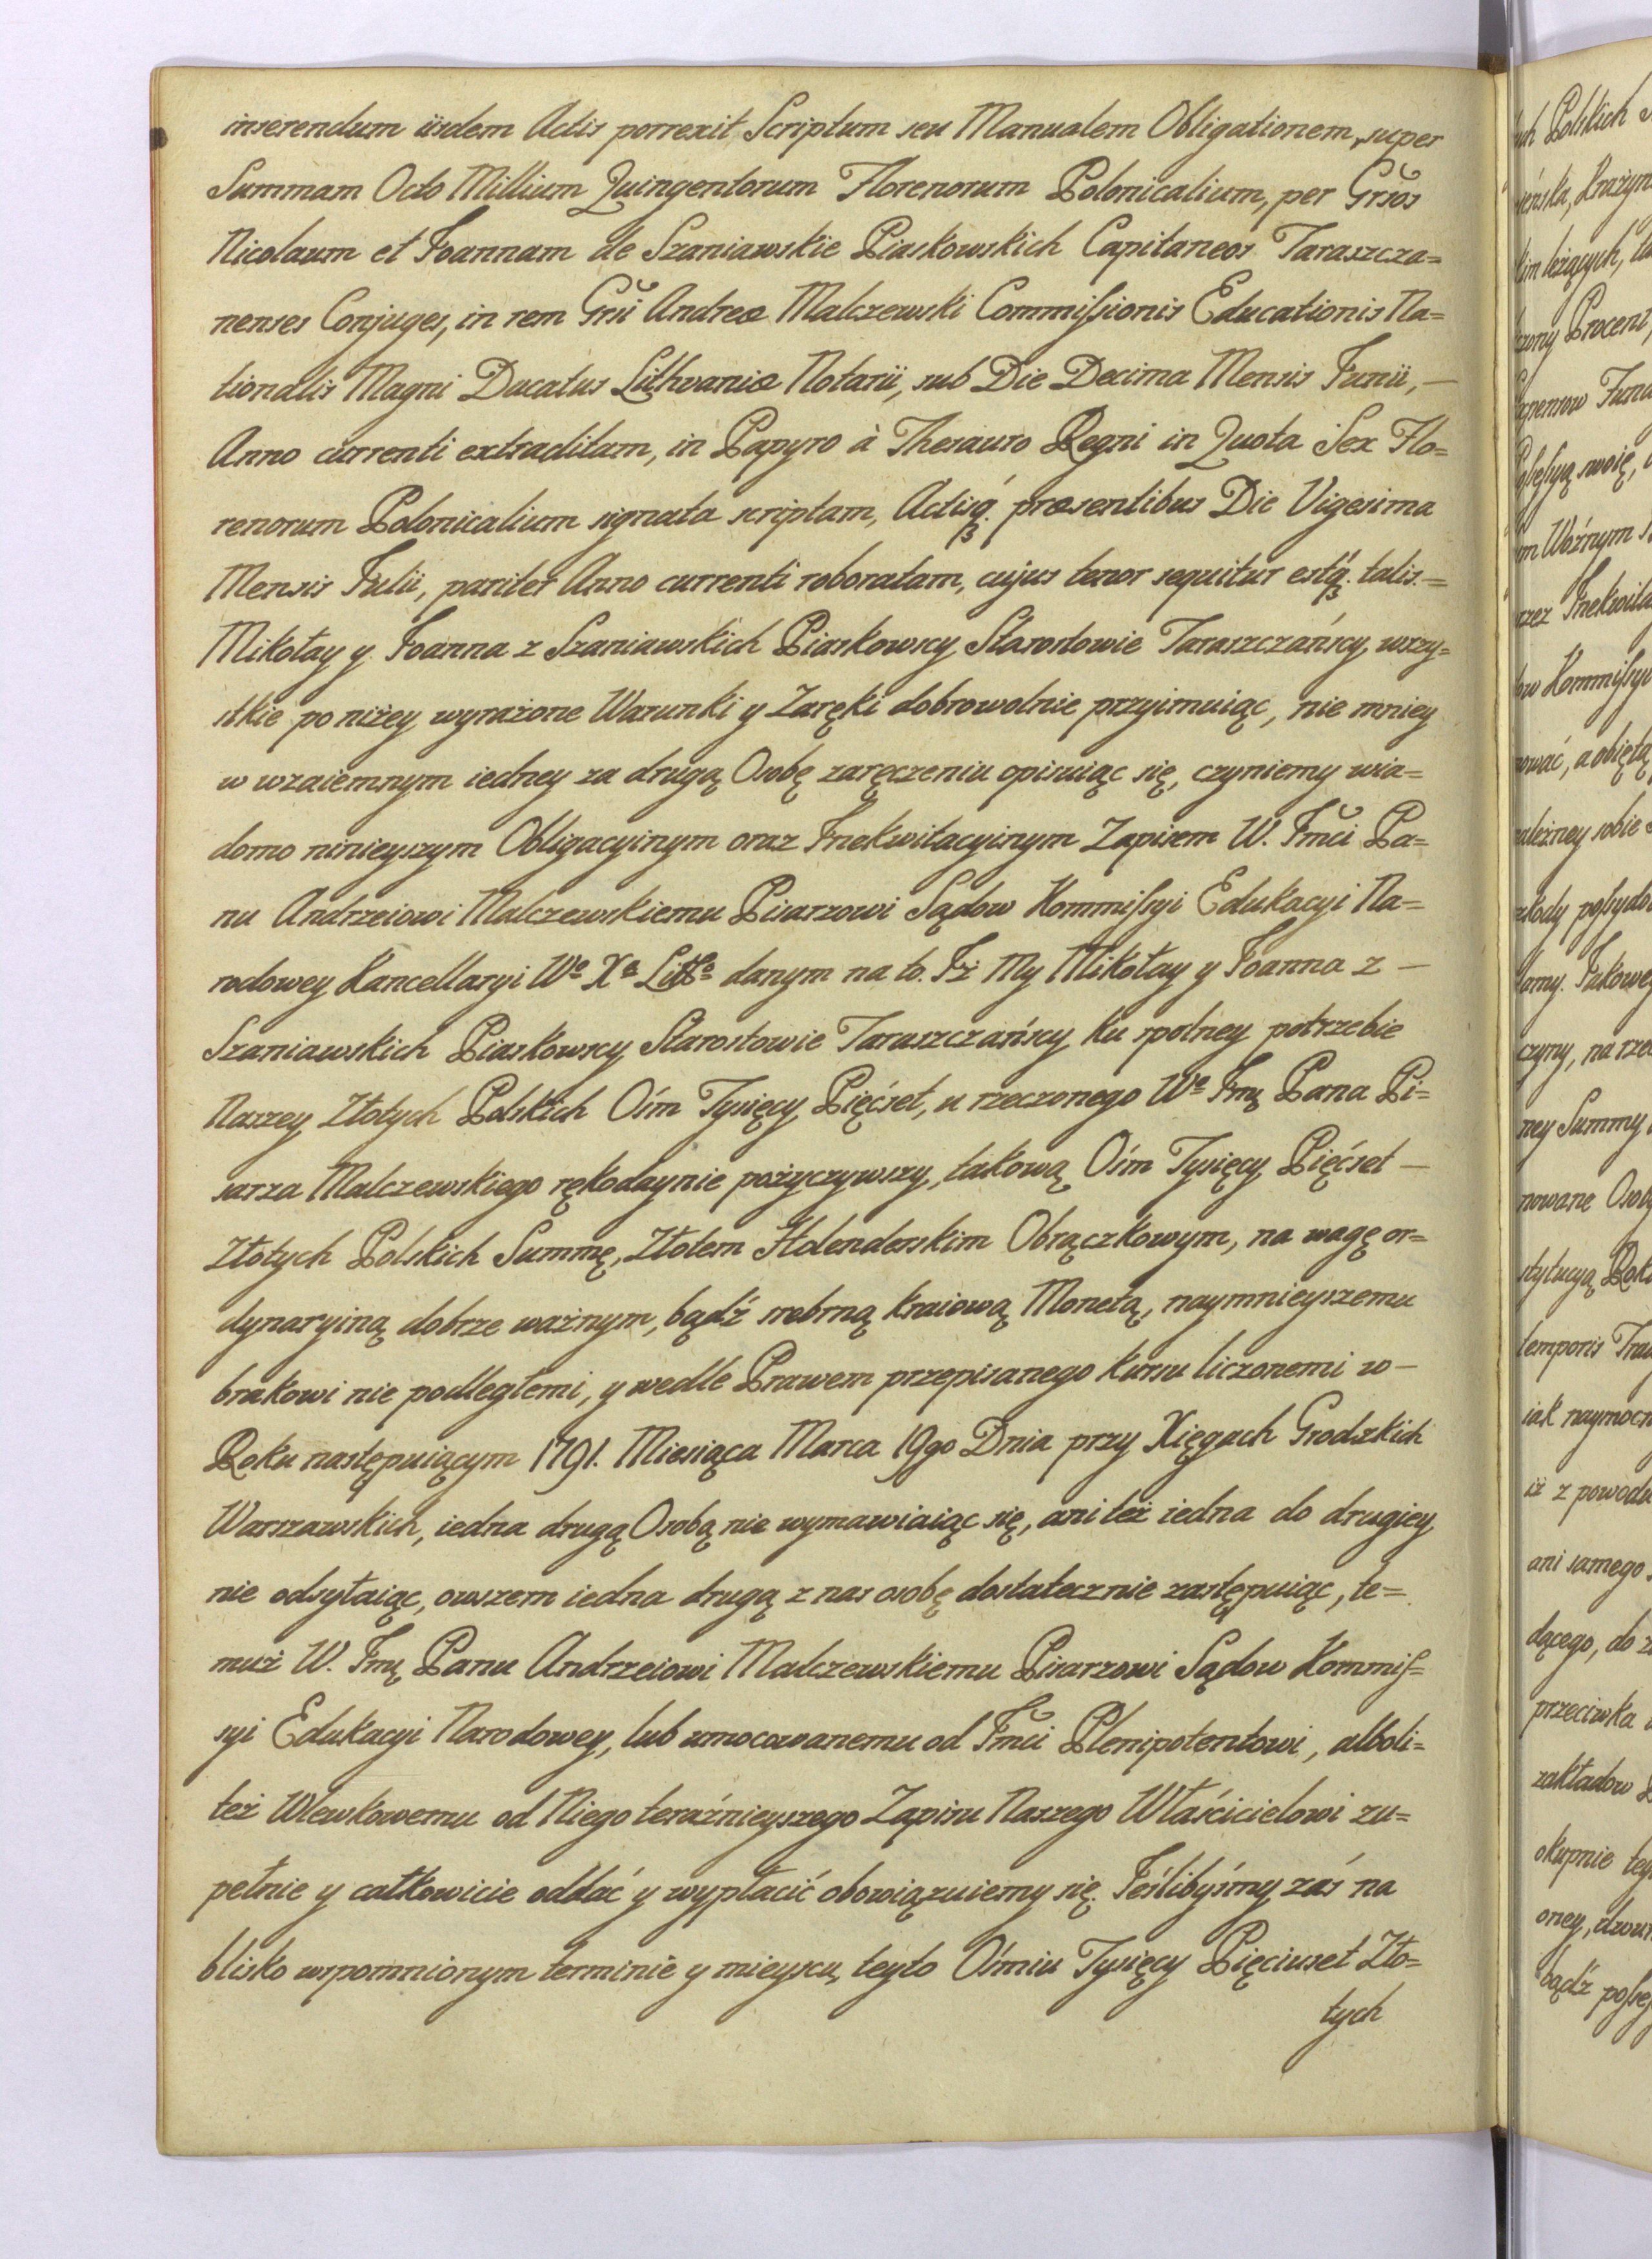 inserendum iisdem Actis porrexit Scriptum seu Manualem Obligationem, super
Summam Octo Millium Quingentorum Florenorum Polonicalium, per Grsos
Nicolaum et Joannam de Szaniawskie Piaskowskich Capitaneos Taraszcza=
nenses Conjuges, in rem Grsi Andreæ Malczewski Commiſsionis Educationis Na=
tionalis Magni Ducatus Lithvaniæ Notarii, sub Die Decima Mensis Junii, —
Anno currenti extraditam, in Papyro à Thesauro Regni in Quota Sex Flo=
renorum Polonicalium signata scriptam, Actisq́ꝫ. præsentibus Die Vigesima
Mensis Julii, pariter Anno currenti roboratam, cujus tenor sequitur estq́ꝫ. talis. =
Mikołay y Joanna z Szaniawskich Piaskowscy Starostowie Taraszczańscy, wszy=
stkie po niżey wyrażone Warunki y Zaręki dobrowolnie przyimuiąc, nie mniey
w wzaiemnym iedney za drugą Osobę zaręczeniu opisuiąc się, czyniemy wia=
domo ninieyszym Obligacyinym oraz Inekwitacyinym Zapisem W. Jm̃ci Pa=
nu Andrzeiowi Malczewskiemu Pisarzowi Sądow Kommiſsyi Edukacyi Na=
rodowey Kancellaryi Wo Xa Litto danym na to. Iż My Mikołay y Joanna z —
Szaniawskich Piaskowscy Starostowie Taraszczańscy ku spolney potrzebie
Naszey Złotych Polskich Ośm Tysięcy Pięćset, u rzeczonego Wo Jmę Pana Pi=
sarza Malczewskiego rękodaynie pożyczywszy, takową Ośm Tysięcy Pięćset —
Złotych Polskich Summę, Złotem Hollenderskim Obrączkowym, na wagę or=
dynaryiną dobrze ważnym, bądź srebrną kraiową Monetą, naymnieyszemu
brakowi nie podległemi, y wedle Prawem przepisanego kursu liczonemi w —
Roku następuiącym 1791. Miesiąca Marca 19go Dnia przy Xięgach Grodzkich
Warszawskich, iedna drugą Osobą nie wymawiaiąc się, ani też iedna do drugiey
nie odsyłaiąc, owszem iedna drugą z nas osobę dostatecznie zastępuiąc, te=
muż W. Jmę Panu Andrzeiowi Malczewskiemu Pisarzowi Sądow Kommiſ=
syi Edukacyi Narodowey, lub umocowanemu od Jm̃ci Plenipotentowi, alboli=
też Wlewkowemu od Niego teraźnieyszego Zapisu Naszego Właścicielowi zu=
pełnie y całkowicie oddać y wypłacić obowiązuiemy się. Jeślibyśmy zaś na
blisko wspomnionym terminie y mieyscu, teyto Ośmiu Tysięcy Pięciuset Zło=
tych